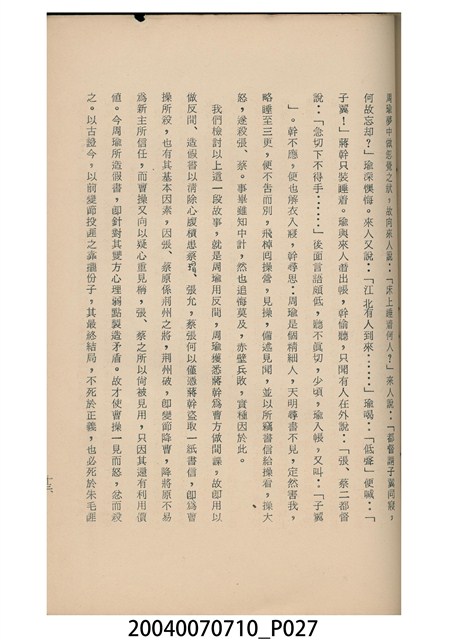 周瑜夢中做忽覺之狀，故問來人說：「床上睡着何人？」來人說：「都督請子翼同寢，
何故忘却？」瑜深懊悔。來人又說：「江北有人到來……」瑜喝：「低聲」便喊：「
子翼！」蔣幹只裝睡着。瑜與來人潛出帳，幹偷聽，只聞有人在外說：「張、蔡二都督
說：「急切下不得手……」後面言語頗低，聽不眞切，少頃，瑜入帳，又叫：「子翼
」。幹不應，便也解衣入寢，幹尋思：周瑜是個精細人，天明尋書不見，定然害我，
略睡至三更，便不告而別，飛棹囘操營，見操，備述見聞，並以所竊書信給操看，操大
怒，遂殺張、蔡。事畢雖知中計，然也追悔莫及，赤壁兵敗，實種因於此。
我們檢討以上這一段故事，就是周瑜用反間，周瑜獲悉蔣幹爲曹方做間諜，故即用以
做反間、造假書以清除心腹積患蔡瑁、張允，蔡張何以僅憑蔣幹盜取一紙書信，即爲曹
操所殺，也有其基本因素，因張、蔡原係荆州之將，荆州破，即變節降曹，降將原不易
爲新主所信任，而曹操又向以疑心重見稱，張、蔡之所以尙被見用，只因其還有利用價
値。今周瑜所造假書，即針對其雙方心理弱點製造矛盾。故才使曹操一見而怒，忿而殺
之。以古證今，以前變節投匪之靠攏份子，其最終結局，不死於正義，也必死於朱毛匪